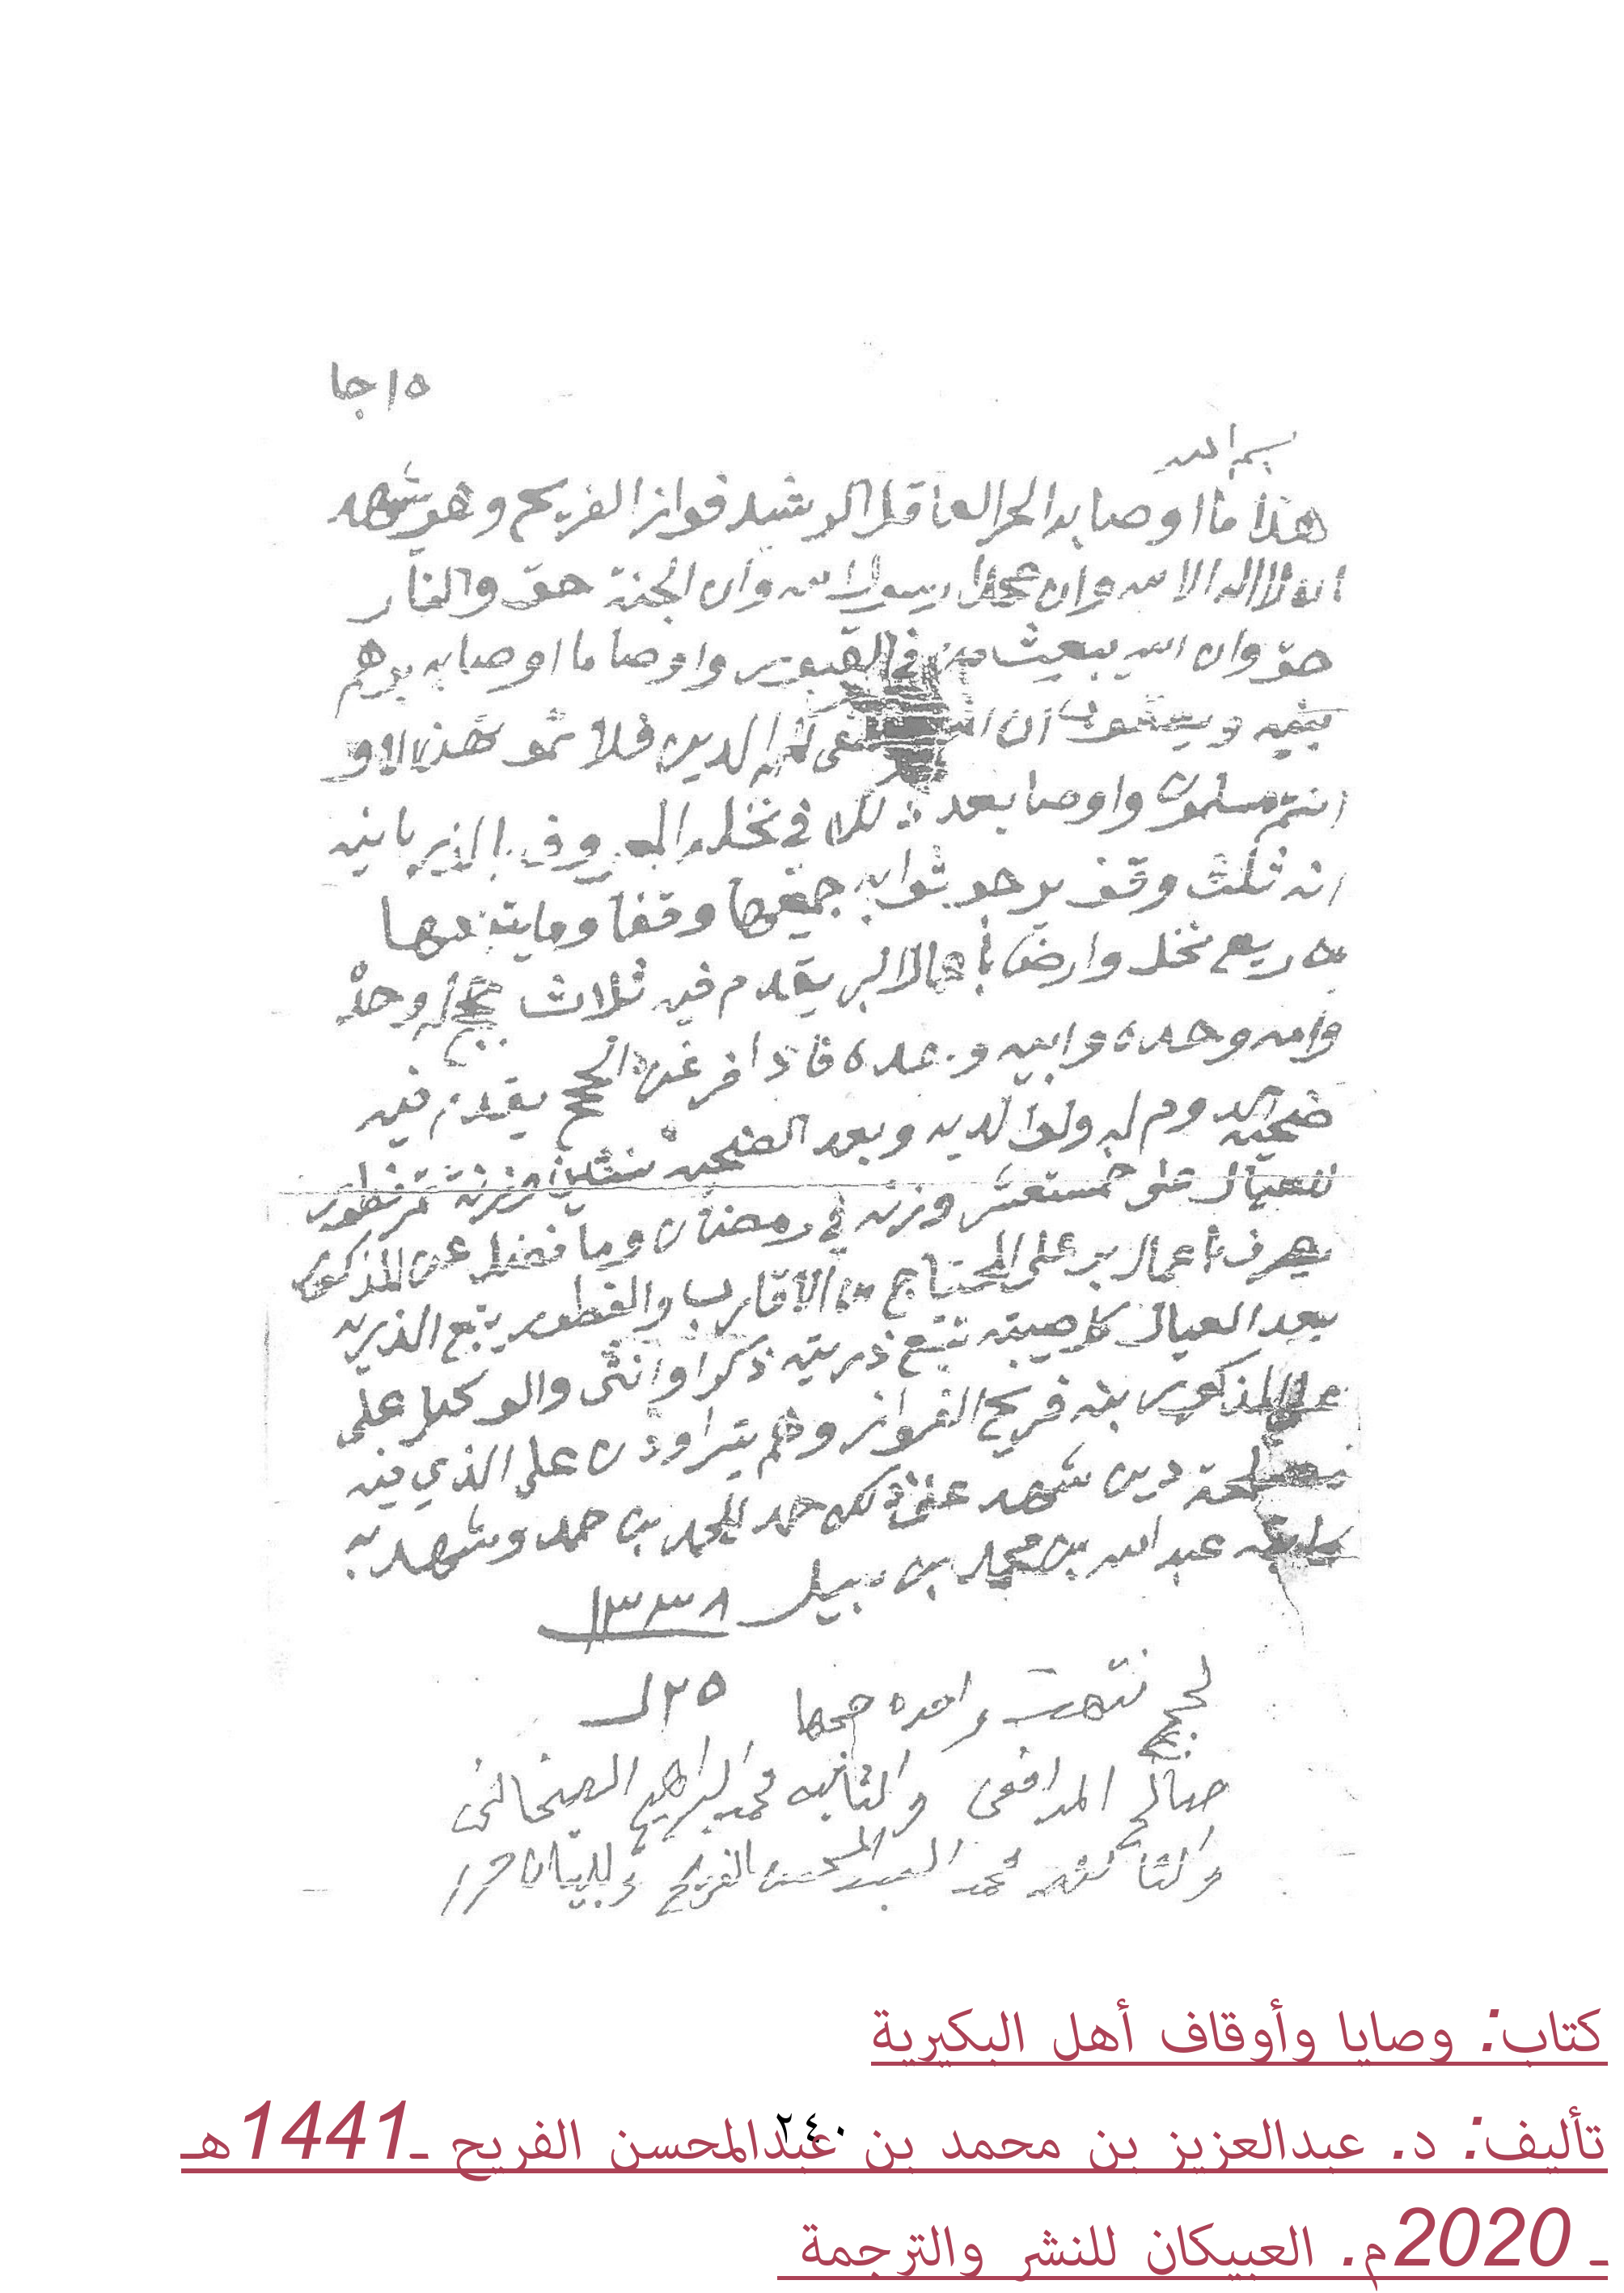 ١٥ جا
بسم الله
هذا ما اوصا به الحر العاقل الرشيد فواز الفريح وهو يشهد
ان لا اله الا الله وان محمدا رسول الله وان الجنة حق والنار
حق وان الله يبعث من في القبور واوصا ما اوصا به برهم
بنيه ويعقوب ان الله اصطفى لكم الدين فلا تموتن الا و
انتم مسلمون واوصا بعد ذلك في نخله المعروف
ان ثلث وقف يرجو ثوابه جميعها وقفا وما يتبعها
من ريع نخل وارض باعمال البر يقدم فيه ثلاث حجج له وحده
وامه وحده وابيه وحده فاذا فرغن الحجج يقدم فيه
ضحية الدوم له ولوالديه وبعد الضحية ستين وزنة تمر فطور
للعيال على خمستعشر وزنه في رمضان وما فضل عن المذكور
يصرف باعمال بر على المحتاج من الاقارب والفطور يتبع الذريه
بعد العيال كا تتبع ذريته ذكرا وانثى والوكيل على
على المذكور بنه فريح الفواز وهم يتراودن على الذي فيه
مصلحة دين شهد على ذلك حمد المحمد بن حمد وشهد به
كاتبه عبدالله بن محمد بن سبيل ١٣٣٨
لحجج نتهت واحده حجها ٢٥ ل
صالح المدافعى والثانيه محمد البراهيم الصخالى
والثالثه محمد العبد المحسن الفريح وللبيان حرر
٢٤٠
كتاب: وصايا وأوقاف أهل البكيرية
تأليف: د. عبدالعزيز بن محمد بن عبدالمحسن الفريح ـ1441هـ
ـ 2020م. العبيكان للنشر والترجمة